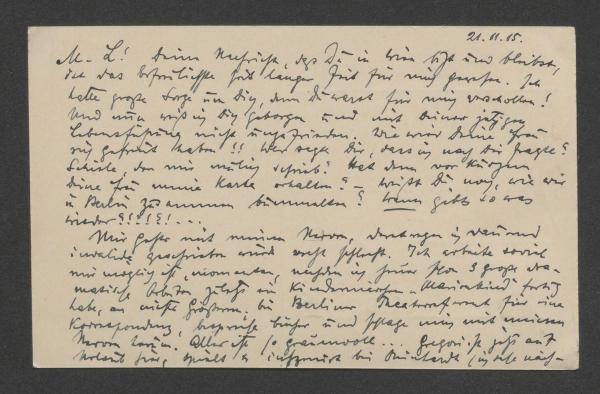 21.11.15.
M. L! Deine Nachricht, daß Du in Wien bist und bleibst,
ist das Erfreulichste seit langer Zeit für mich gewesen. Ich
hatte große Sorge um Dich, denn Du warst für mich verschollen!
Und nun weiß ich Dich geborgen und mit Deiner jetzigen
Lebensführung nicht unzufrieden. Wie wird Deine Frau
sich gefreut haben!! Wer sagte Dir, dass ich nach Dir fragte?
der mir schrieb? Hat denn vor Kurzem
Deine Frau meine Karte erhalten? – Weißt Du noch, wie wir
in Berlin zusammen bummelten? Wann gibts so was
wieder?!?!?!...
Mir geht's mit meinen Nerven, derentwegen ich dauernd
invalide geschrieben wurde recht schlecht. Ich arbeite soviel
mir möglich ist, momentan, nachdem ich 3 große dra-
matische Arbeiten zuletzt ein Kindermärchen „Marienkind" fertig
habe, an nichts Größerem, bin Berliner Theaterreferent für eine
Korrespondenz, bespreche Bücher und schlage mich mit meinen
Nerven herum. Alles ist so grauenvoll... geht auf
Urlaub, spielt er bei Reinhardt (ich sehe näch-